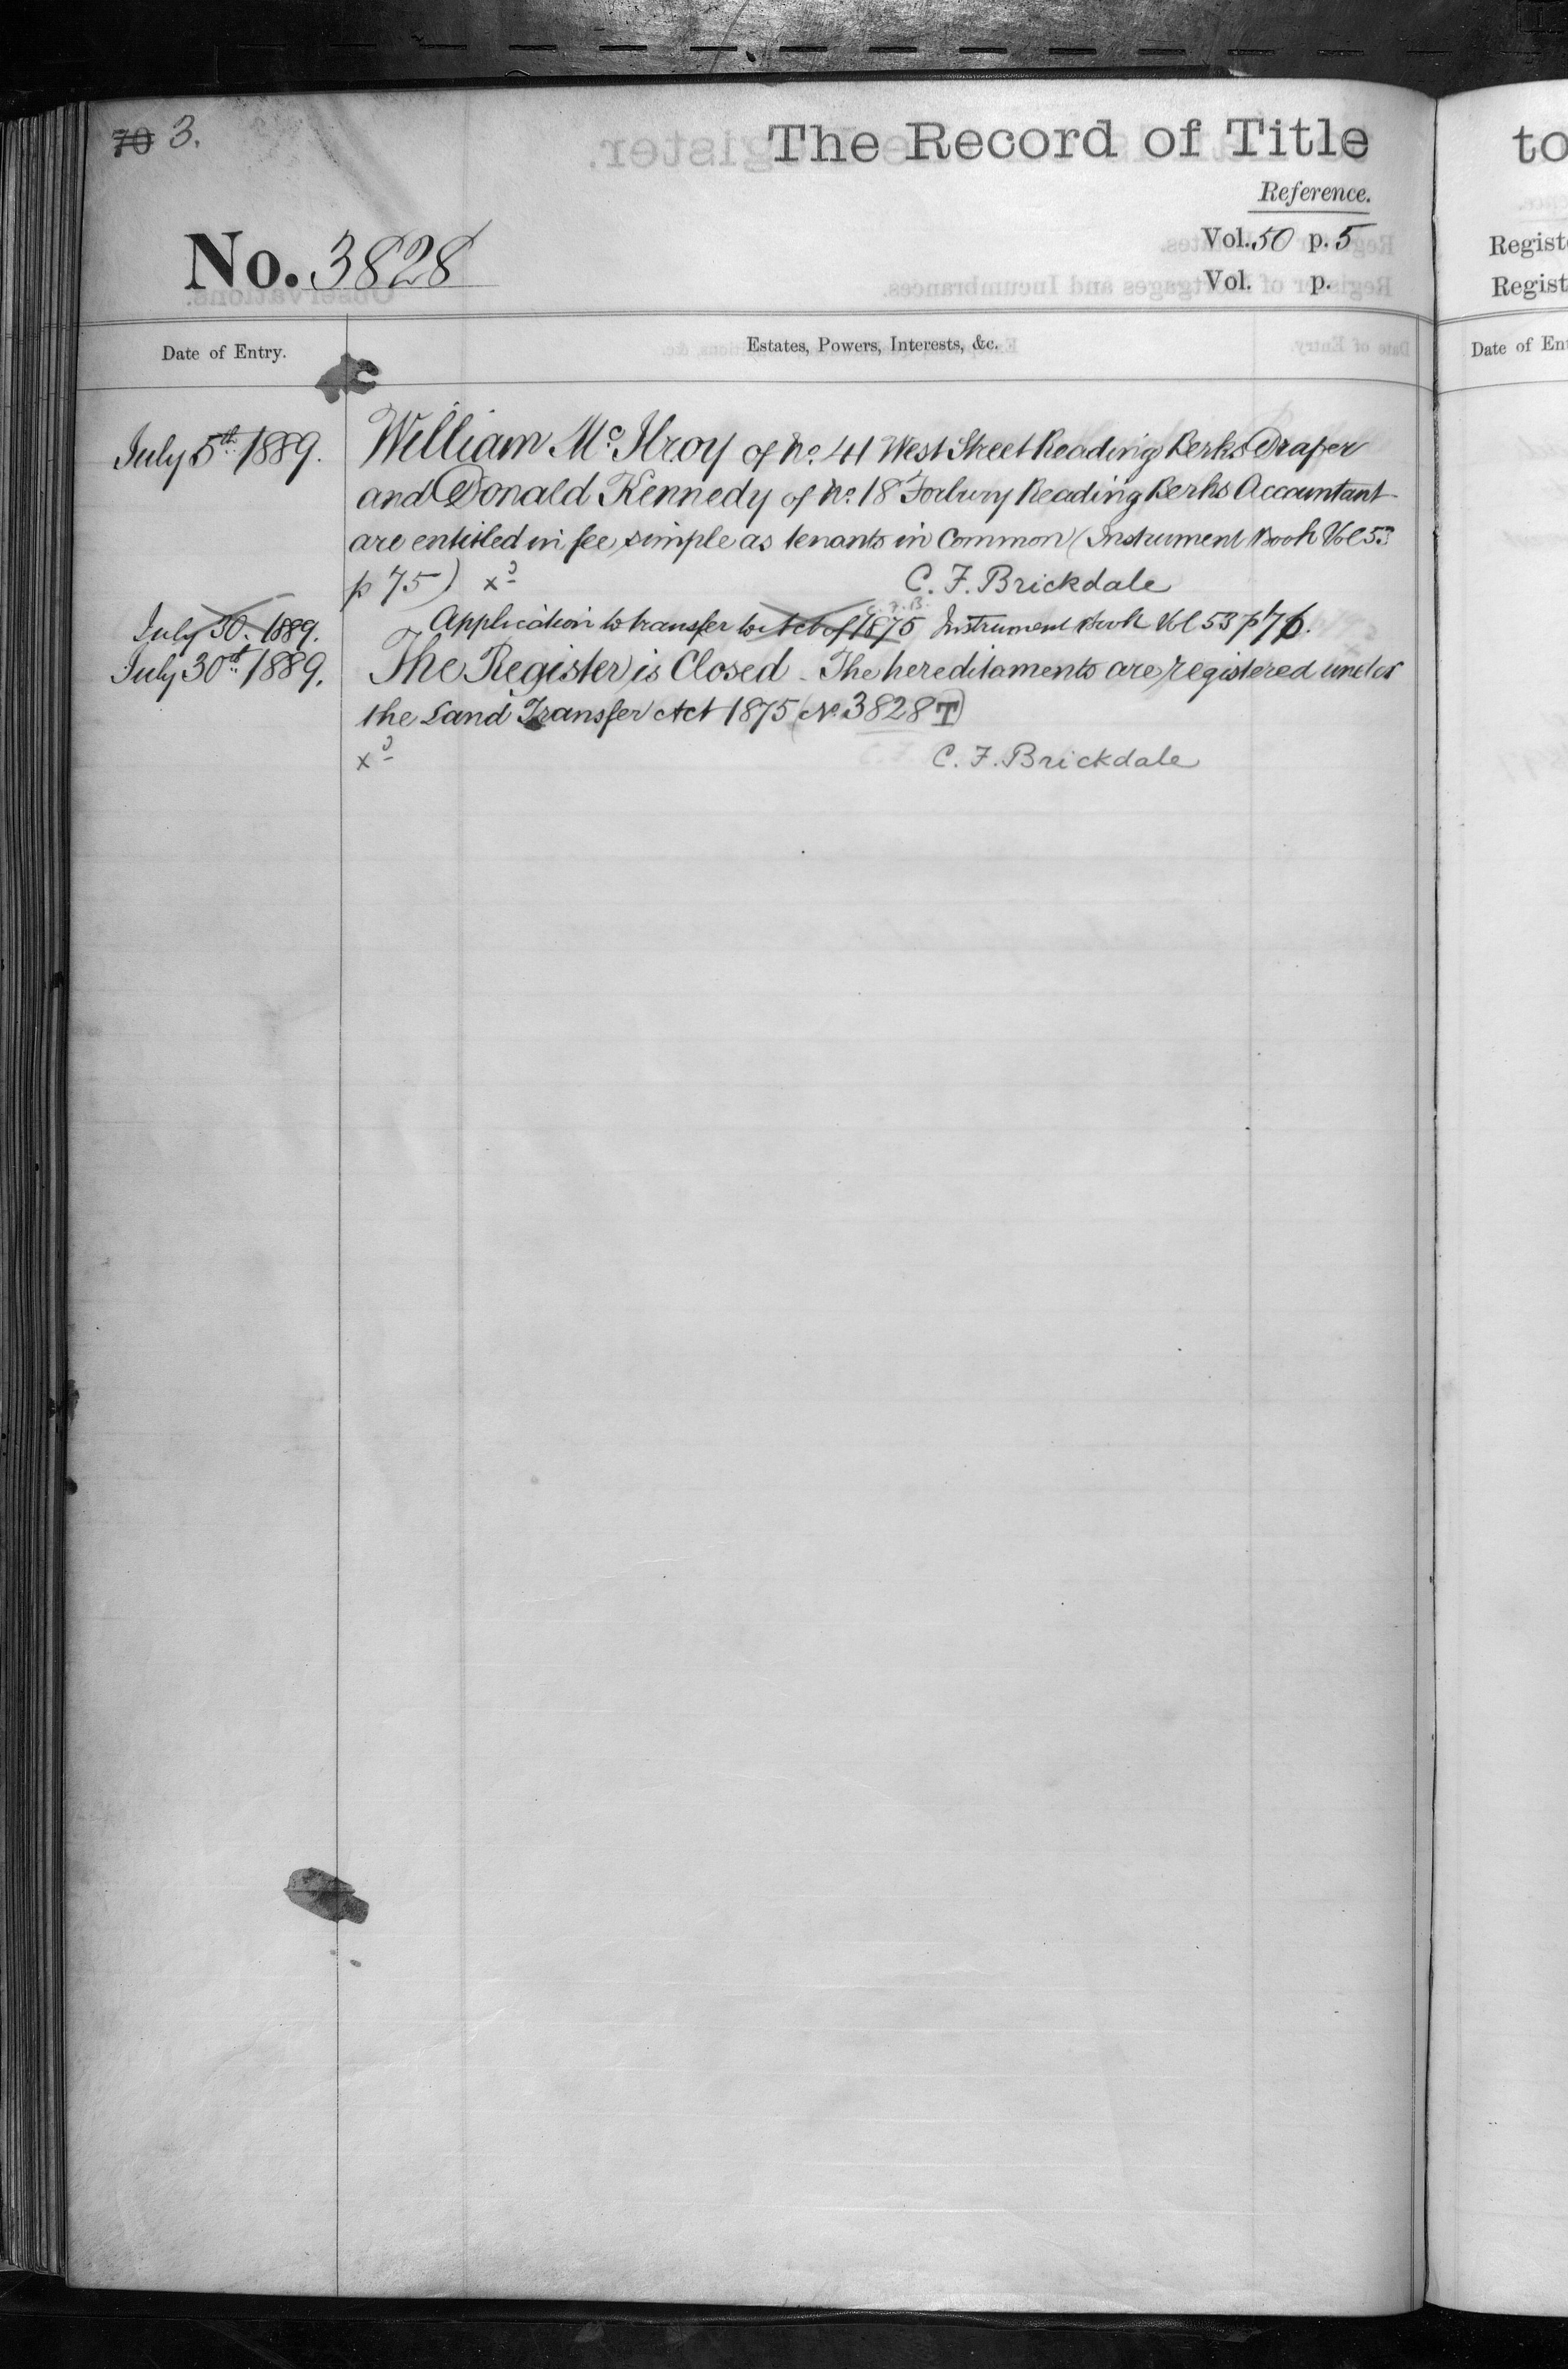 70 3.
The Record of Title
Reference.
No. 3828
Vol. 50 p. 5
Vol. p.
Date of Entry.
Estates, Powers, Interests, &c.
July 5th 1889. William Mc Ilroy of No. 41 West Street Reading Berks Draper
and Donald Kennedy of No. 18 Forbury Reading Berks Accountant
are entitled in fee simple as tenants in Common (Instrument Book Vol 53
p 75) C. F. Brickdale
C. F. B.
July 30. 1889. Application to transfer to Act of 1875 Instrument Book Vol 53 p 76.
July 30th 1889. The Register is Closed - The hereditaments are registered under
the Land Transfer Act 1875 (No. 3828 T)
C. F. Brickdale
to
Regist
Regist
Date of En